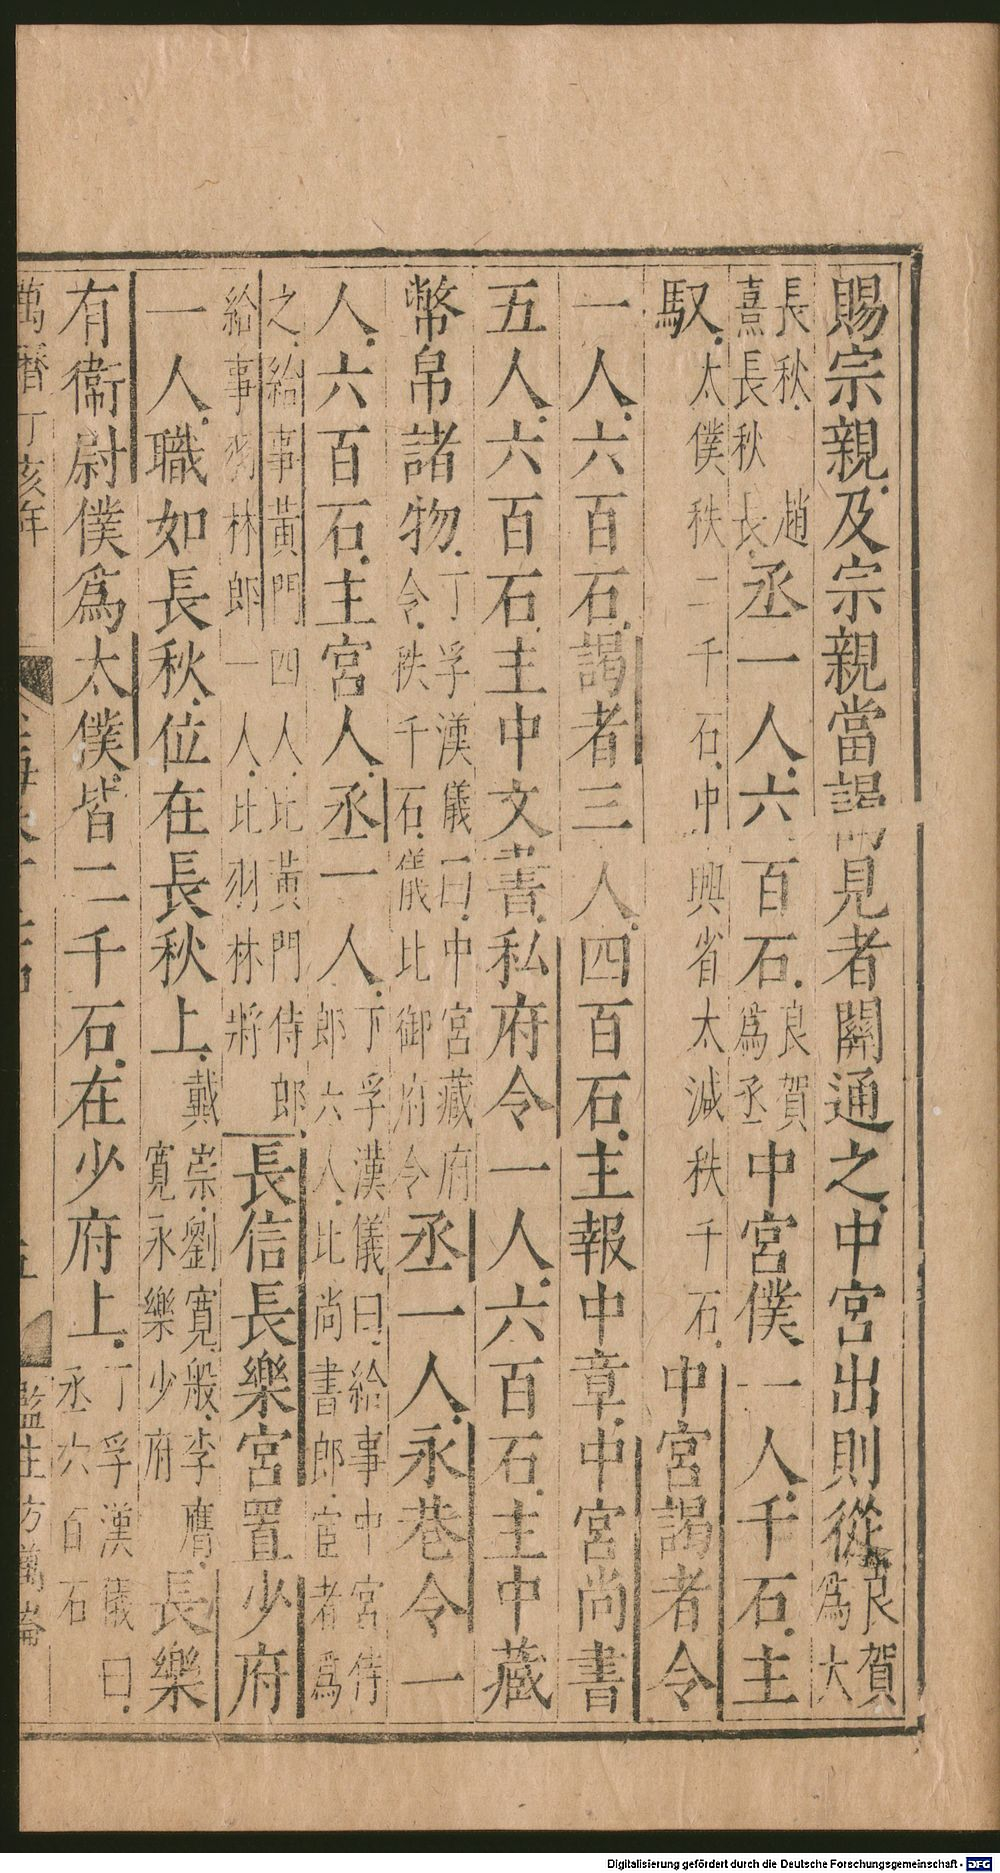 賜宗親及宗親當謁見者關通之中宮出則從良賀爲大
長秋趙熹長秋長丞一人六百石良賀爲丞中宮僕一人千石主
馭太僕秩二千石中興省太減秩千石中宮謁者令
一人六百石謁者三人四百石主報中章中宮尚書
五人六百石主中文書私府令一人六百石主中藏
幣帛諸物丁孚漢儀曰中宮藏府令秩千石儀比御府令丞一人永巷令一
人六百石主宮人丞一人丁孚漢儀曰給事中宮侍郎六人比尚書郎宦者爲
之給事黃門四人比黃門侍郎給事羽林郎一人比羽林將長信長樂宮置少府
一人職如長秋位在長秋上戴崇劉寬般李膺寬永樂少府長樂
有衞尉僕爲太僕皆二千石在少府上丁孚漢儀曰丞六百石
萬曆丁亥年
監生方萬
Digitalisierung gefördert durch die Deutsche Forschungsgemeinschaft - DFG